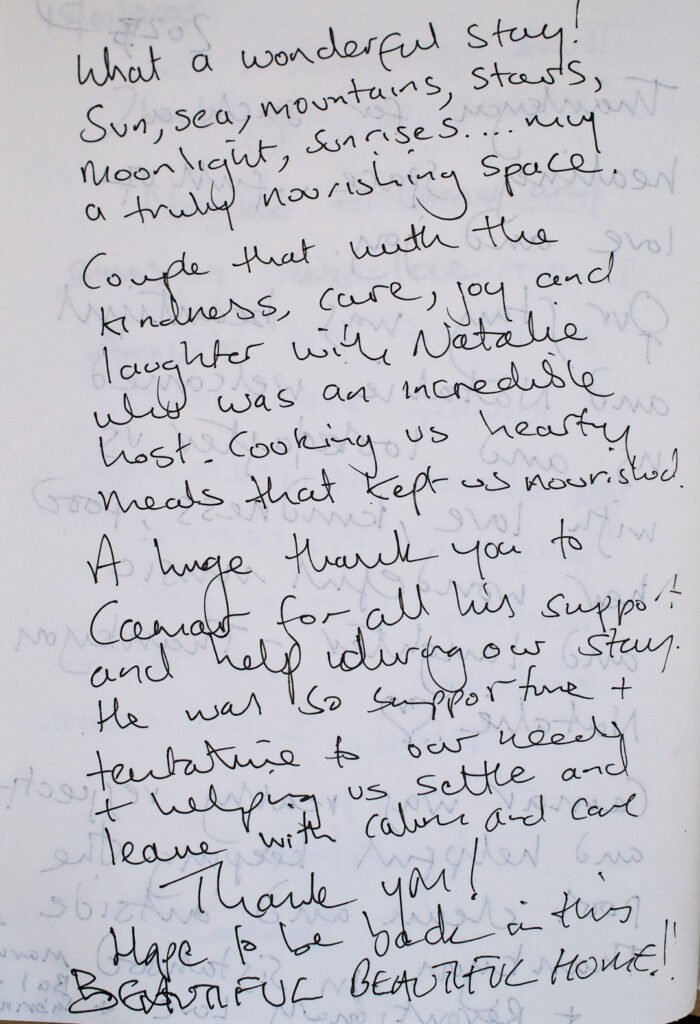 What a wonderful stay!
Sun, sea, mountains, stars,
moonlight, sunrises.... 
a truly nourishing space.
Couple that with the
kindness, care, joy and
laughter with Natalie
who was an incredible
host. Cooking us hearty
meals that kept us nourished.
A huge thank you to
for all his support
and help during our stay.
He was so supportive +
tentative to our needs
+ helping us settle and
leave with calm and care
Thank you!
Hope to be back in this
BEAUTIFUL BEAUTIFUL HOME!!